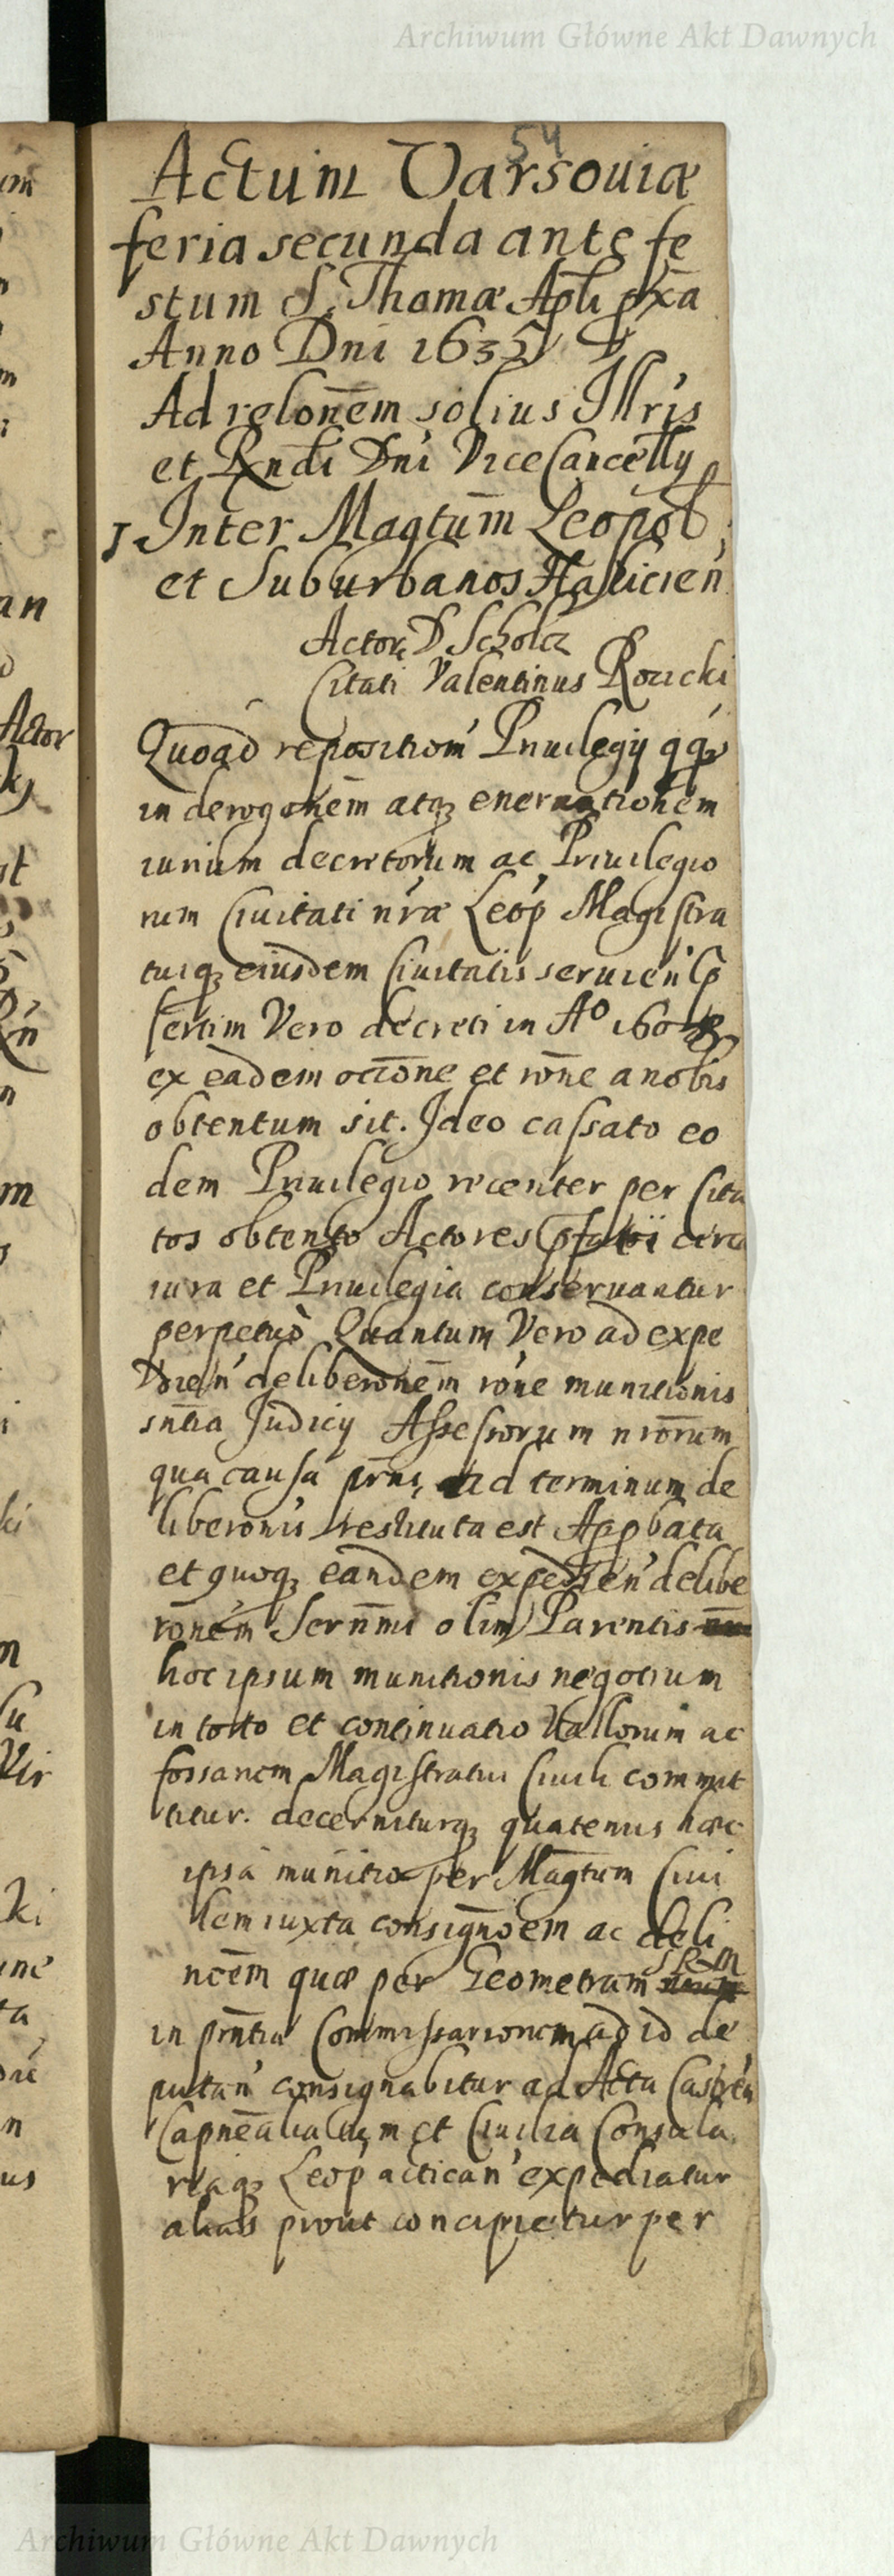 Archiwum Główne Akt Dawnych
54
Actum Varsoviæ
feria secunda ante fe
stum S. Thomæ Apli pxa
Anno Dni 1635
Ad relonem solius Illris
et Rndi Dni Vice Cancelly
1 Inter Magtum Leopol
et Suburbanos Halicien
Actor D Scholcz
Citati Valentinus Rozicki
Quoad repositiom Priuilegij qq
in derogonem atq enervationem
iurium decretorum ac Priuilegio
rum Ciuitati nræ Leop Magistra
tuiq eiusdem Ciuitatis seruien p
sertim Vero decreti in Ao 160
ex eadem occione et rone a nobis
obtentum sit. Ideo cassato eo
dem Priuilegio recenter per Cita
tos obtento Actores circa
iura et Priuilegia conseruantur
perpetuò Quantum Vero ad expe
dien deliberonem rone munitionis
sntia Judicij Assessorum nrorum
qua causa prns ad terminum de
liberonis restituta est Appbata
et quoq eandem expedien delibe
ronem Sernmi olim Parentis
hoc ipsum munitionis negotium
in toto et continuatio Vallorum ac
fossarum Magistratui Ciuili commit
titur. decerniturq quatenus hæc
ipsa munitio per Magtum Ciui
lem iuxta consignoem ac deli
ncem quæ per Geometram S R M
in prntia Commissariorum ad id de
putan consignabitur ad Acta Castren
Capnealia et Ciuilia Consula
riaq Leop actican expediatur
alias prout concipietur per
Actor
Archiwum Główne Akt Dawnych